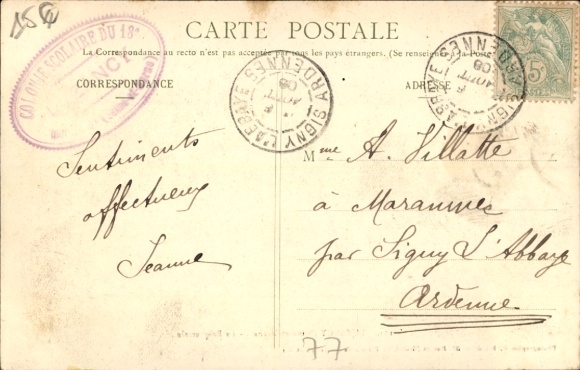 15€
CARTE POSTALE
La Correspondance au recto n'est pas acceptée par tous les pays étrangers. (Se renseigner à la Poste
CORRESPONDANCE
ADRESSE
COLONIE SCOLAIRE DU 18e
SIGNY L'ABBAYE ARDENNES
AOUT
08
SIGNY L'ABBAYE ARDENNES
AOUT
08
5c
POSTES
Sentiments
affectueux
Jeanne
Mme A. Villatte
à Maranwez
par Signy L'Abbaye
Ardenne
77